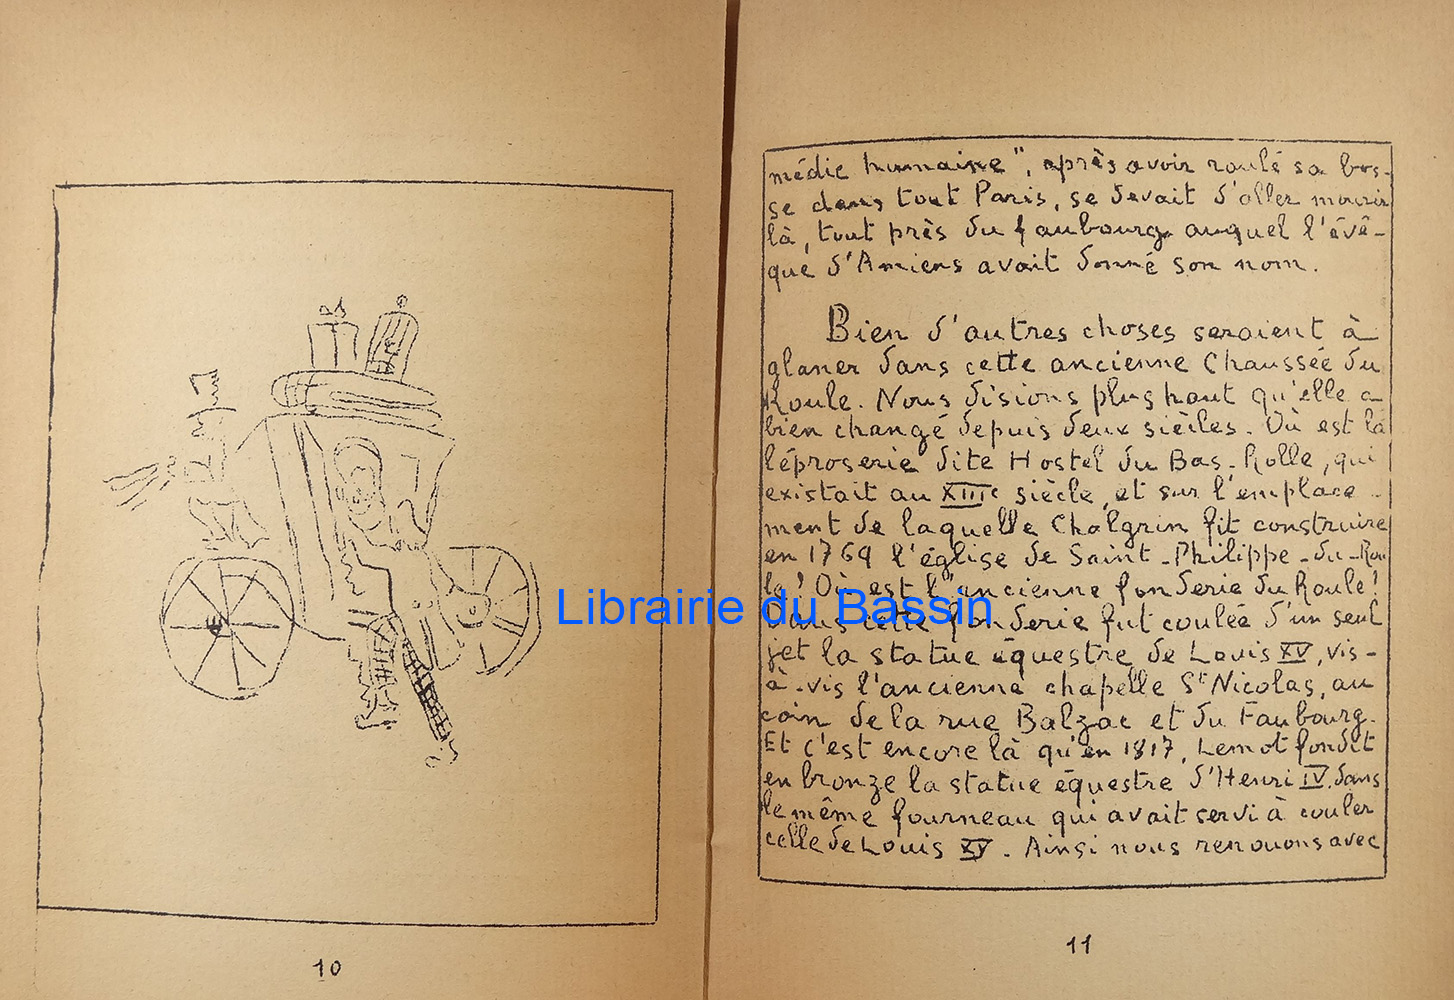 10
médie humaine", après avoir roulé sa bos-
se dans tout Paris, se devait d'aller mourir
là, tout près du faubourg auquel l'évê-
que d'Amiens avait donné son nom.
Bien d'autres choses seraient à
glaner dans cette ancienne Chaussée du
Roule. Nous disions plus haut qu'elle a
bien changé depuis deux siècles. Où est la
léproserie dite Hostel du Bas-Rolle, qui
existait au XIIIe siècle, et sur l'emplace-
ment de laquelle Chalgrin fit construire
en 1769 l'église de Saint-Philippe-du-Rou
le! Où est l'ancienne fonderie du Roule!
Dans cette fonderie fut coulée d'un seul
jet la statue équestre de Louis XV, vis-
à-vis l'ancienne chapelle St Nicolas, au
coin de la rue Balzac et du Faubourg.
Et c'est encore là qu'en 1817, Lemot fondit
en bronze la statue équestre d'Henri IV dans
le même fourneau qui avait servi à couler
celle de Louis XV. Ainsi nous renouons avec
11
Librairie du Bassin